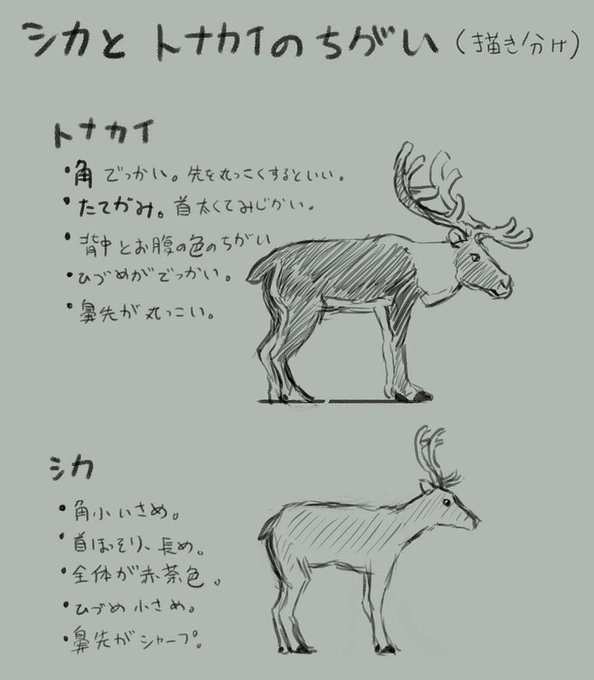 シカと トナカイのちがい(描き分け)
トナカイ
・角 でっかい。先を丸っこくするといい。
・たてがみ。首太くてみじかい。
・背中とお腹の色のちがい
・ひづめがでっかい。
・鼻先が丸っこい。
シカ
・角小いさめ。
・首ほっそり、長め。
・全体が赤茶色。
・ひづめ小さめ。
・鼻先がシャープ。